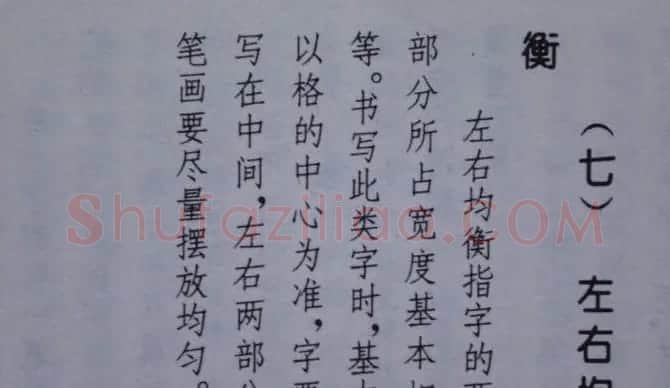 （七） 左右均
衡
左右均衡指字的两
部分所占宽度基本相
等。书写此类字时，基本
以格的中心为准，字要
写在中间，左右两部分
笔画要尽量摆放均匀。
Shufaziliao.COM